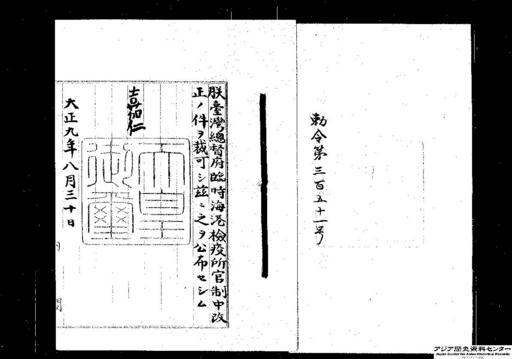 勅令第三百五十一号
朕臺灣總督府臨時海港檢疫所官制中改
正ノ件ヲ裁可シ茲ニ之ヲ公布セシム
嘉仁
天皇
御璽
大正九年八月三十日
アジア歴史資料センター
Japan Center for Asian Historical Records